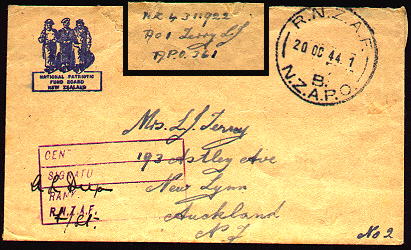 NATIONAL PATRIOTIC
FUND BOARD
NEW ZEALAND
NZ 4311922
AC1 Terry LJ
APO 361
R.N.Z.A.F.
20 OC 44.1
B.
N.Z.A.P.O.
Mrs. L. J. Terry
193 Astley Ave
New Lynn
Auckland
N Z
CEN
SIGNATU
RANK
R.N.Z.A.F.
F/Lt.
No 2